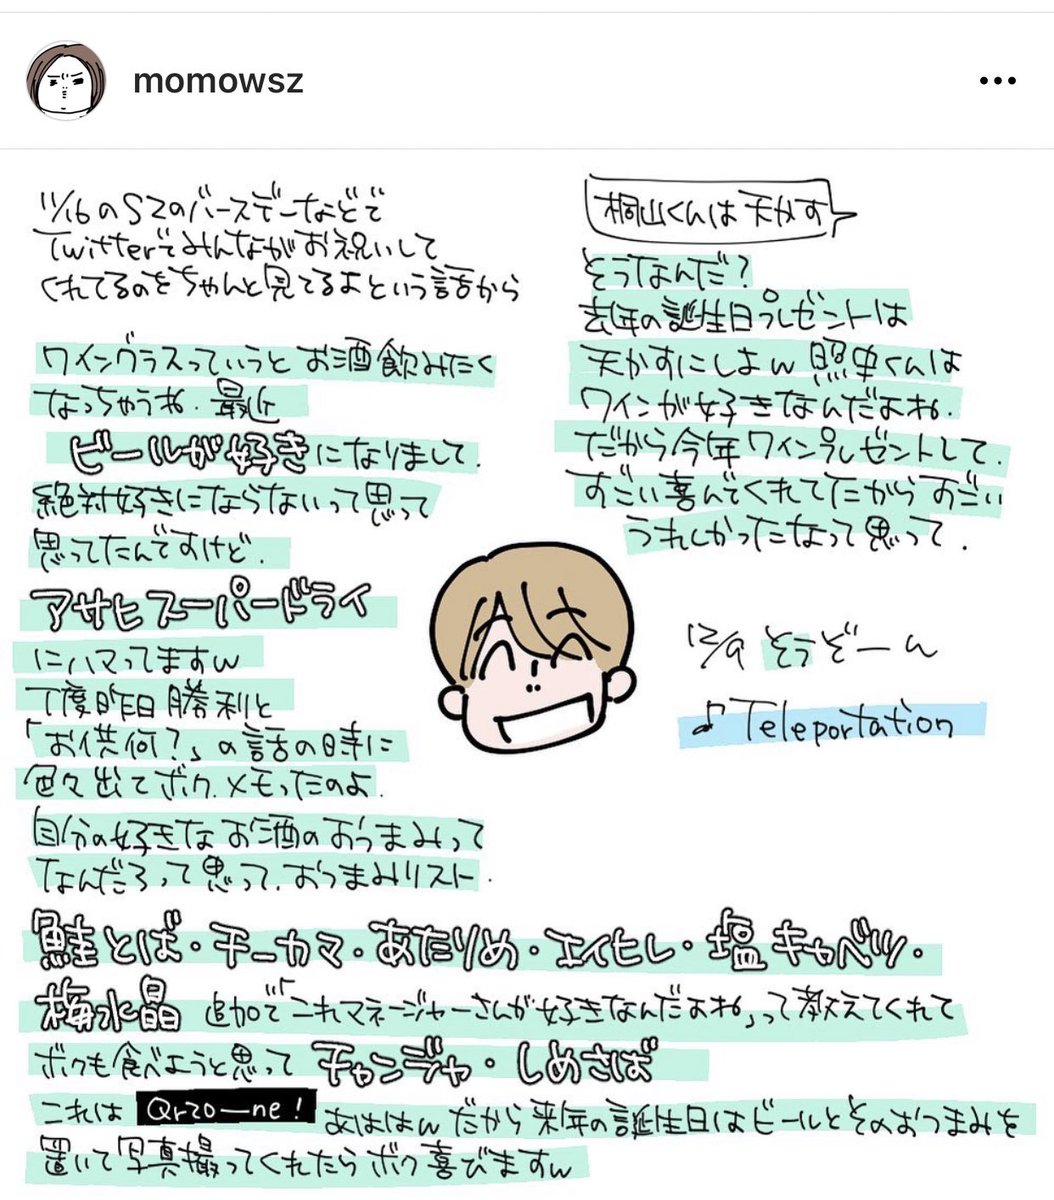 momowsz
11/16のSZのバースデーなどで
Twitterでみんながお祝いして
くれてるのをちゃんと見てるよという話から
ワイングラスっていうとお酒飲みたく
なっちゃうね.最近
ビールが好きになりまして.
絶対好きにならないって思って
思ってたんですけど.
アサヒスーパードライ
にハマってますw
丁度昨日勝利と
「お供何?」の話の時に
色々出てボク.メモったのよ.
自分の好きなお酒のおつまみって
なんだろって思って.おつまみリスト.
鮭とば・チーカマ・あたりめ・エイヒレ・塩キャベツ・
梅水晶 追加で「これマネージャーさんが好きなんだよね」って教えてくれて
ボクも食べようと思って チャンジャ・しめさば
これは Qrzo—ne! あははんだから来年の誕生日はビールとそのおつまみを
置いて写真撮ってくれたらボク喜びますw
桐山くんは天かす
そうなんだ?
去年の誕生日プレゼントは
天かすにしよw 照史くんは
ワインが好きなんだよね.
だから今年ワインプレゼントして.
すごい喜んでくれてたからすごい
うれしかったなって思って.
12/9 そうぞーん
♪Teleportation